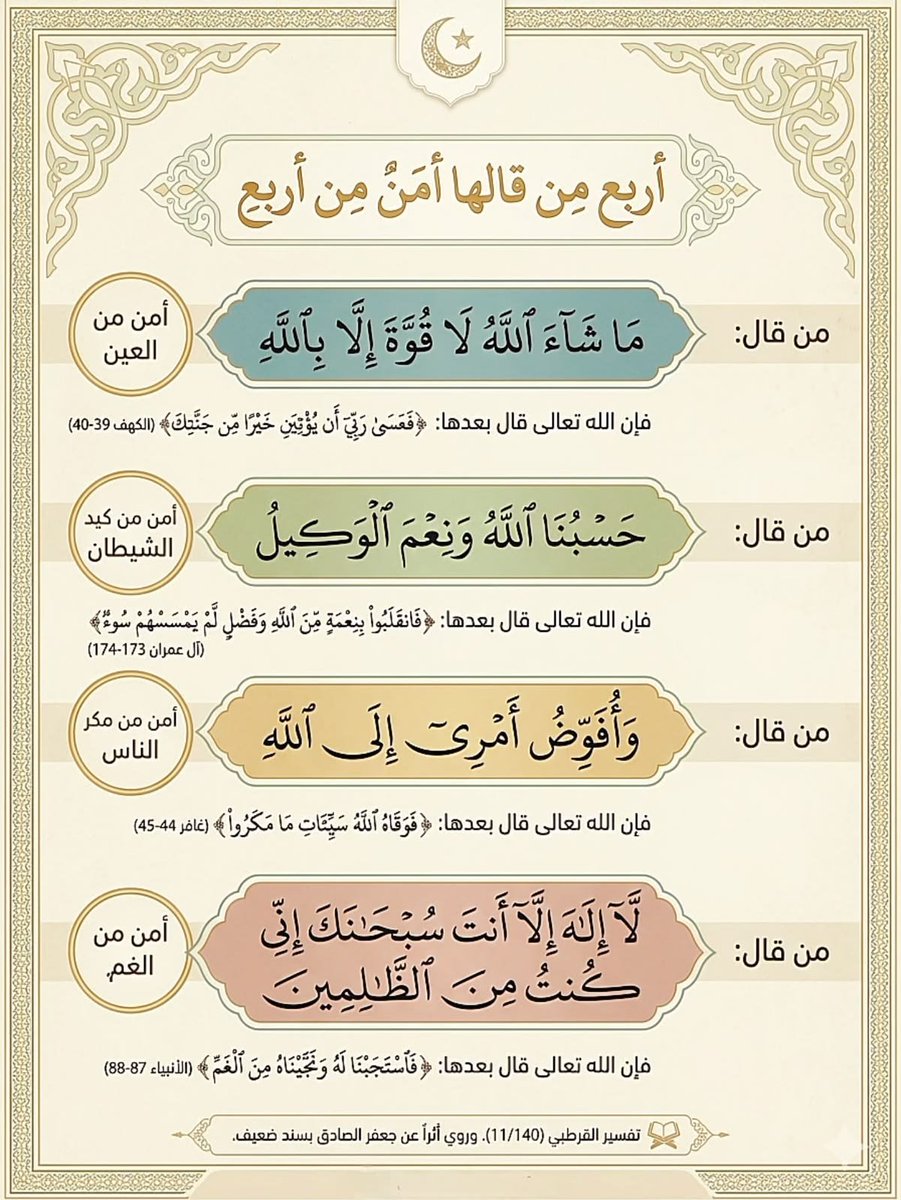 أربع مِن قالها أمَنٌ مِن أربعِ
من قال:
مَا شَآءَ ٱللَّهُ لَا قُوَّةَ إِلَّا بِٱللَّهِ
أمن من
العين
فإن الله تعالى قال بعدها: ﴿فَعَسَىٰ رَبِّيٓ أَن يُؤْتِيَنِ خَيْرًا مِّن جَنَّتِكَ﴾ (الكهف 39-40)
من قال:
حَسْبُنَا ٱللَّهُ وَنِعْمَ ٱلْوَكِيلُ
أمن من كيد
الشيطان
فإن الله تعالى قال بعدها: ﴿فَانقَلَبُوا۟ بِنِعْمَةٍ مِّنَ ٱللَّهِ وَفَضْلٍ لَّمْ يَمْسَسْهُمْ سُوٓءٌ﴾
(آل عمران 173-174)
من قال:
وَأُفَوِّضُ أَمْرِىٓ إِلَى ٱللَّهِ
أمن من مكر
الناس
فإن الله تعالى قال بعدها: ﴿فَوَقَاهُ ٱللَّهُ سَيِّئَاتِ مَا مَكَرُوا۟﴾ (غافر 44-45)
من قال:
لَّآ إِلَٰهَ إِلَّآ أَنتَ سُبْحَٰنَكَ إِنِّى
كُنتُ مِنَ ٱلظَّٰلِمِينَ
أمن من
الغم
فإن الله تعالى قال بعدها: ﴿فَٱسْتَجَبْنَا لَهُ وَنَجَّيْنَاهُ مِنَ ٱلْغَمِّ﴾ (الأنبياء 87-88)
تفسير القرطبي (11/140). وروي أثراً عن جعفر الصادق بسند ضعيف.